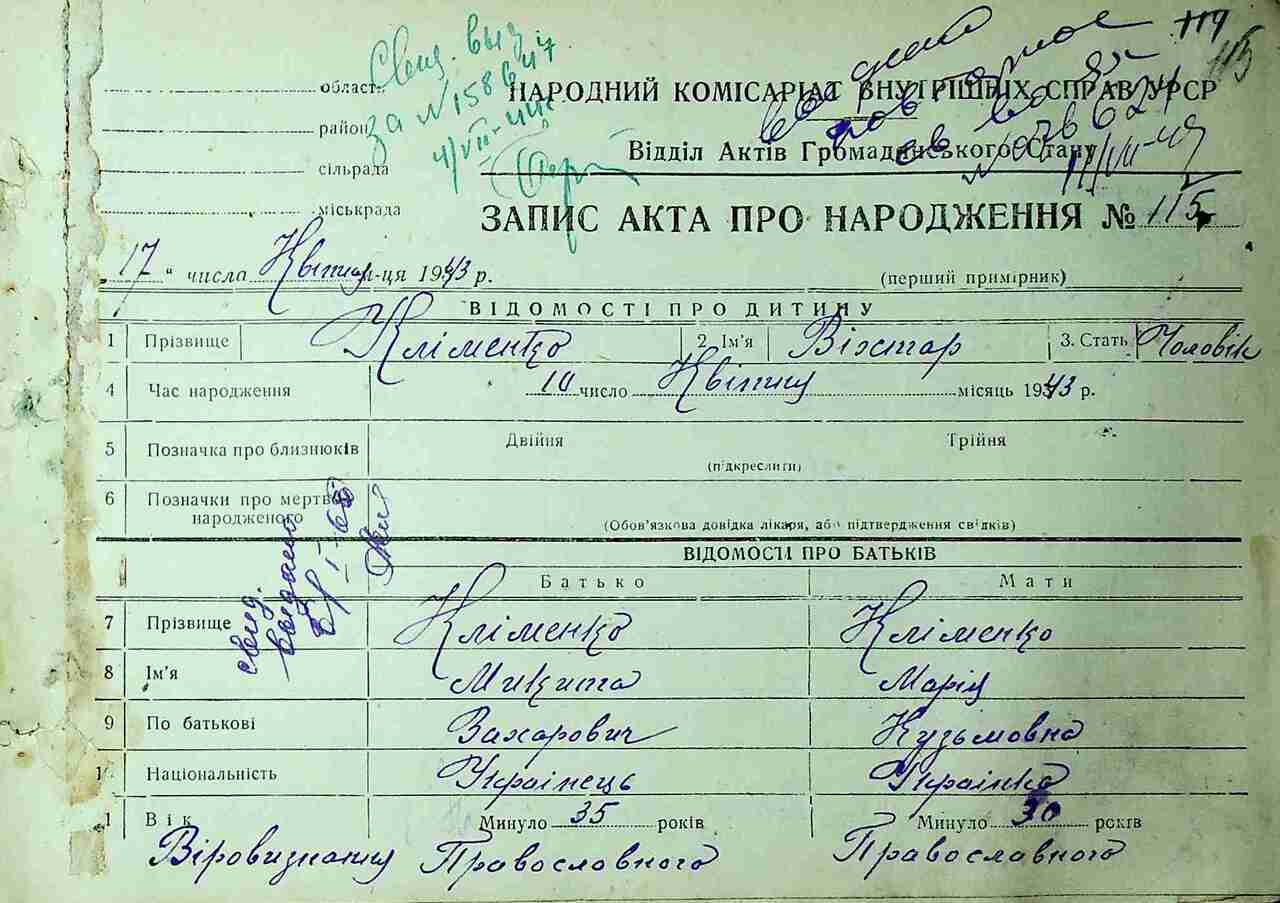 119
115
Свид. выд.
за N 158647
4/VIII-44
области
район
сільрада
міськрада
НАРОДНИЙ КОМІСАРІАТ ВНУТРІШНІХ СПРАВ УРСР
Відділ Актів Громадянського Стану
ЗАПИС АКТА ПРО НАРОДЖЕННЯ № 115
17 " числа Квітня м-ця 1943 р.
(перший примірник)
ВІДОМОСТІ ПРО ДИТИНУ
1 Прізвище Кліменко 2. Ім'я Віктар 3. Стать Чоловік
4 Час народження 10 число Квітня місяць 1943 р.
5 Позначка про близнюків Двійня Трійня
(підкреслити)
6 Позначки про мертвонародженого
(Обов'язкова довідка лікаря, або підтвердження свідків)
свид.
выдано
ВІДОМОСТІ ПРО БАТЬКІВ
Батько Мати
7 Прізвище Кліменко Кліменко
8 Ім'я Микита Марія
9 По батькові Захарович Кузьмовна
10 Національність Українець Українка
11 Вік Минуло 35 років Минуло 30 років
Віровизнання Православного Православного